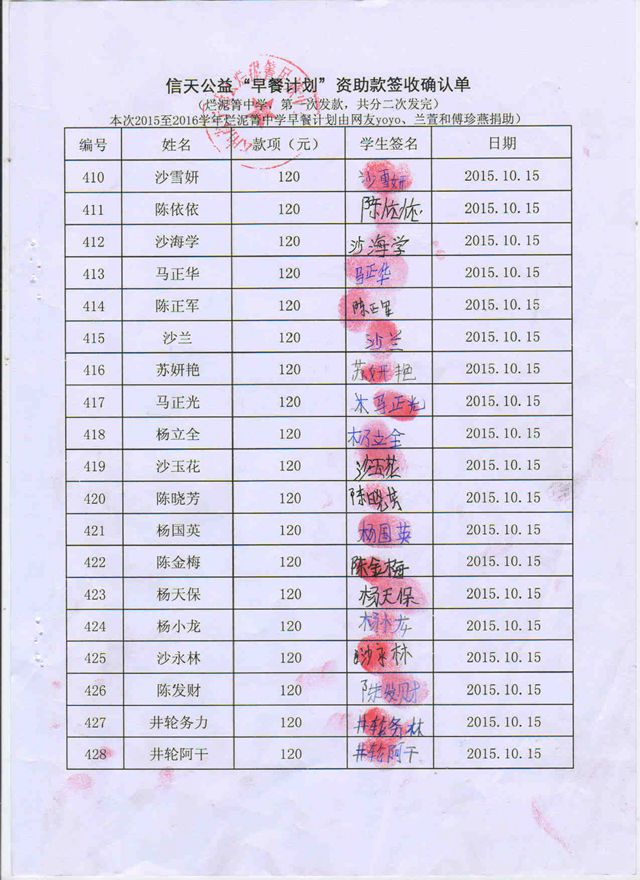 信天公益“早餐计划”资助款签收确认单
（烂泥箐中学，第一次发款，共分二次发完）
本次2015至2016学年烂泥箐中学早餐计划由网友yoyo、兰萱和傅珍燕捐助）
编号 姓名 款项（元） 学生签名 日期
410 沙雪妍 120 沙雪妍 2015.10.15
411 陈依依 120 陈依依 2015.10.15
412 沙海学 120 沙海学 2015.10.15
413 马正华 120 马正华 2015.10.15
414 陈正军 120 陈正军 2015.10.15
415 沙兰 120 沙兰 2015.10.15
416 苏妍艳 120 苏妍艳 2015.10.15
417 马正光 120 马正光 2015.10.15
418 杨立全 120 杨立全 2015.10.15
419 沙玉花 120 沙玉花 2015.10.15
420 陈晓芳 120 陈晓 2015.10.15
421 杨国英 120 杨国英 2015.10.15
422 陈金梅 120 陈金梅 2015.10.15
423 杨天保 120 杨天保 2015.10.15
424 杨小龙 120 杨小龙 2015.10.15
425 沙永林 120 沙永林 2015.10.15
426 陈发财 120 陈发财 2015.10.15
427 井轮务力 120 井轮务林 2015.10.15
428 井轮阿干 120 井轮阿干 2015.10.15